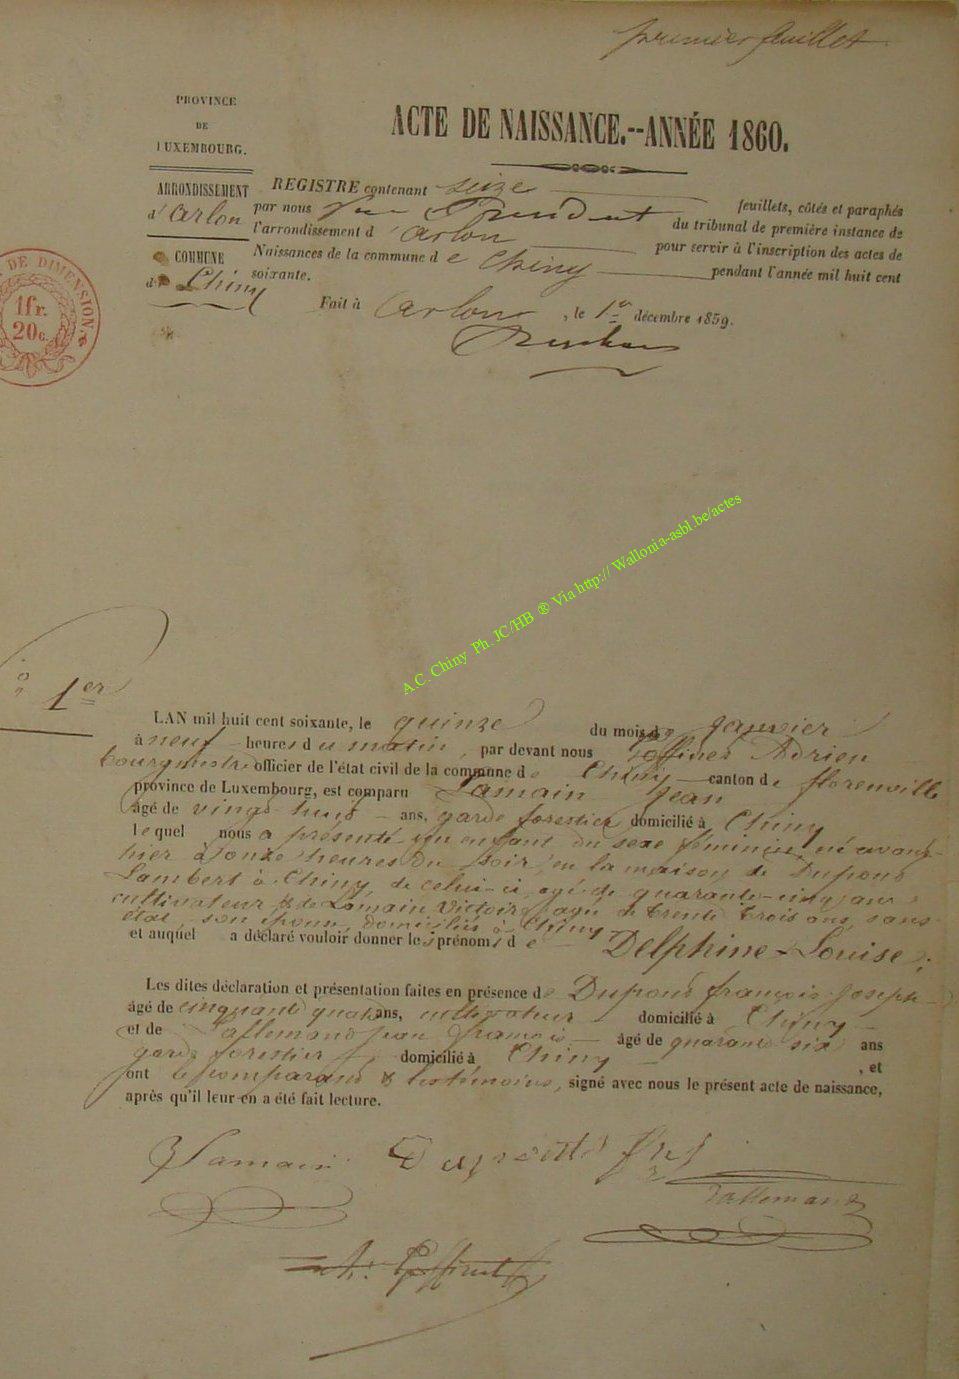 premier feuillet
PROVINCE
DE
LUXEMBOURG.
ARRONDISSEMENT
d'Arlon
COMMUNE
de Chiny
DE DIMENSION.
1fr.
20c.
ACTE DE NAISSANCE.--ANNÉE 1860.
REGISTRE contenant seize feuillets, côtés et paraphés
par nous Président du tribunal de première instance de
l'arrondissement d'Arlon pour servir à l'inscription des actes de
Naissances de la commune de Chiny pendant l'année mil huit cent
soixante.
Fait à Arlon, le 1er décembre 1859.
A.C. Chiny Ph. JC/HB ® Via http:// Wallonia-asbl.be/actes
1er
LAN mil huit cent soixante, le quinze du mois de janvier
à neuf heures du matin, par devant nous Adrien
bourgmestre officier de l'état civil de la commune de Chiny canton de florenville
province de Luxembourg, est comparu Lamain Jean
âgé de vingt huit ans, garde forestier domicilié à Chiny
lequel nous a présenté un enfant du sexe féminin, né avant
hier à onze heures du soir, en la maison de Dupont
Lambert à Chiny, de celui-ci, agé de quarante-cinq ans
cultivateur & de Lamain Victoire, agée de trente trois ans, sans
état, son épouse, domiciliés à Chiny
et auquel a déclaré vouloir donner les prénoms de Delphine-Louise;
Les dites déclaration et présentation faites en présence de Dupont françois-joseph
âgé de cinquante quatre ans, cultivateur domicilié à Chiny
et de Lallemand jean françois âgé de quarante six ans
garde forestier domicilié à Chiny, et
ont le comparant & les témoins, signé avec nous le présent acte de naissance,
après qu'il leur en a été fait lecture.
Lamain
Lallemand